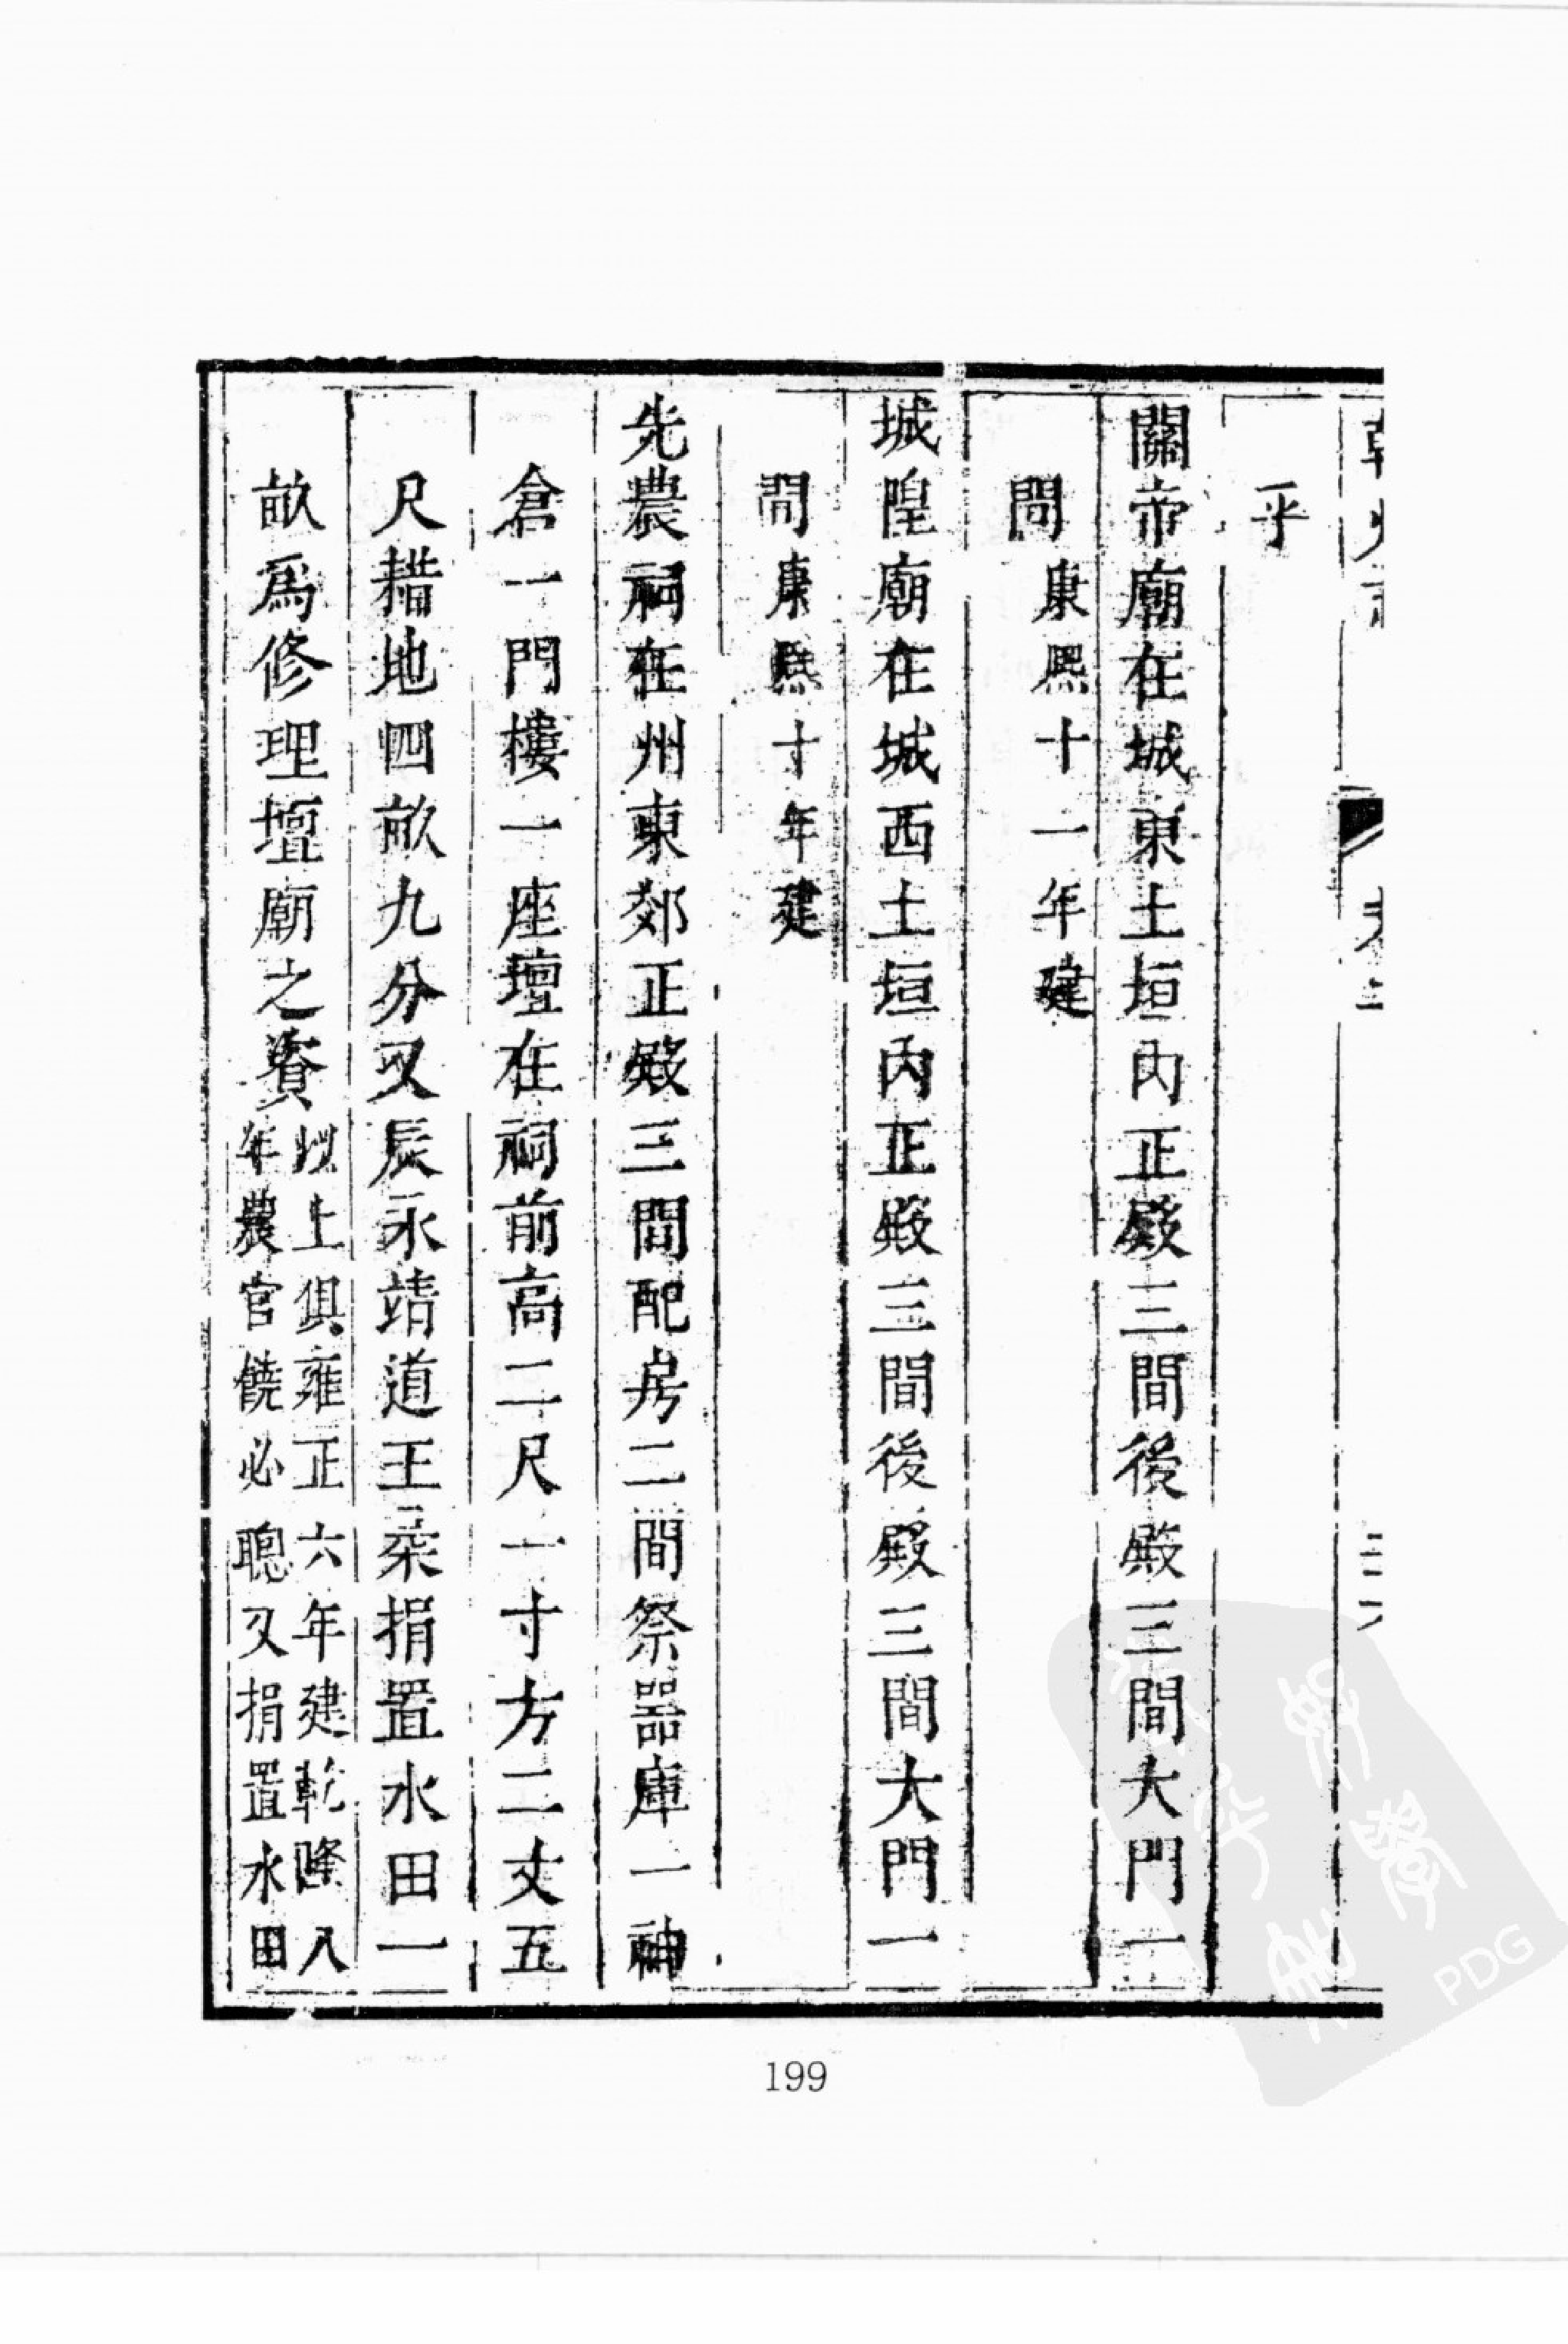 乎
關帝廟在城東土垣内正殿三間後殿三間大門一
間康熙十一年建
城隍廟在城西土垣内正殿三間後殿三間大門一
間康熙十年建
先農祠在州東郊正殿三間配房二間祭器庫一神
倉一門樓一座壇在祠前高二尺一寸方二丈五
尺耤地四畝九分又辰永靖道王柔捐置水田一
畝為修理壇廟之資
以上俱雍正六年建乾隆八
年農官饒必聰又捐置水田
199
PDG